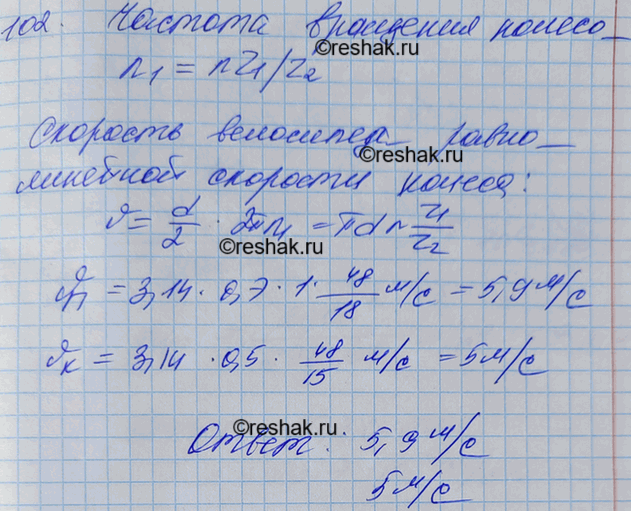 102. Частота вращения колесо_
©reshak.ru
n₁ = nz₁/z₂
Скорость велосипед_ равно_
©reshak.ru
линейной скорости колеса:
ϑ = d/2 · 2πn₁ = πdn z₁/z₂
©reshak.ru
ϑп = 3,14 · 0,7 · 1 · 48/18 м/с = 5,9 м/с
ϑк = 3,14 · 0,5 · 48/15 м/с = 5 м/с
©reshak.ru
Ответ: 5,9 м/с
©reshak.ru
5 м/с